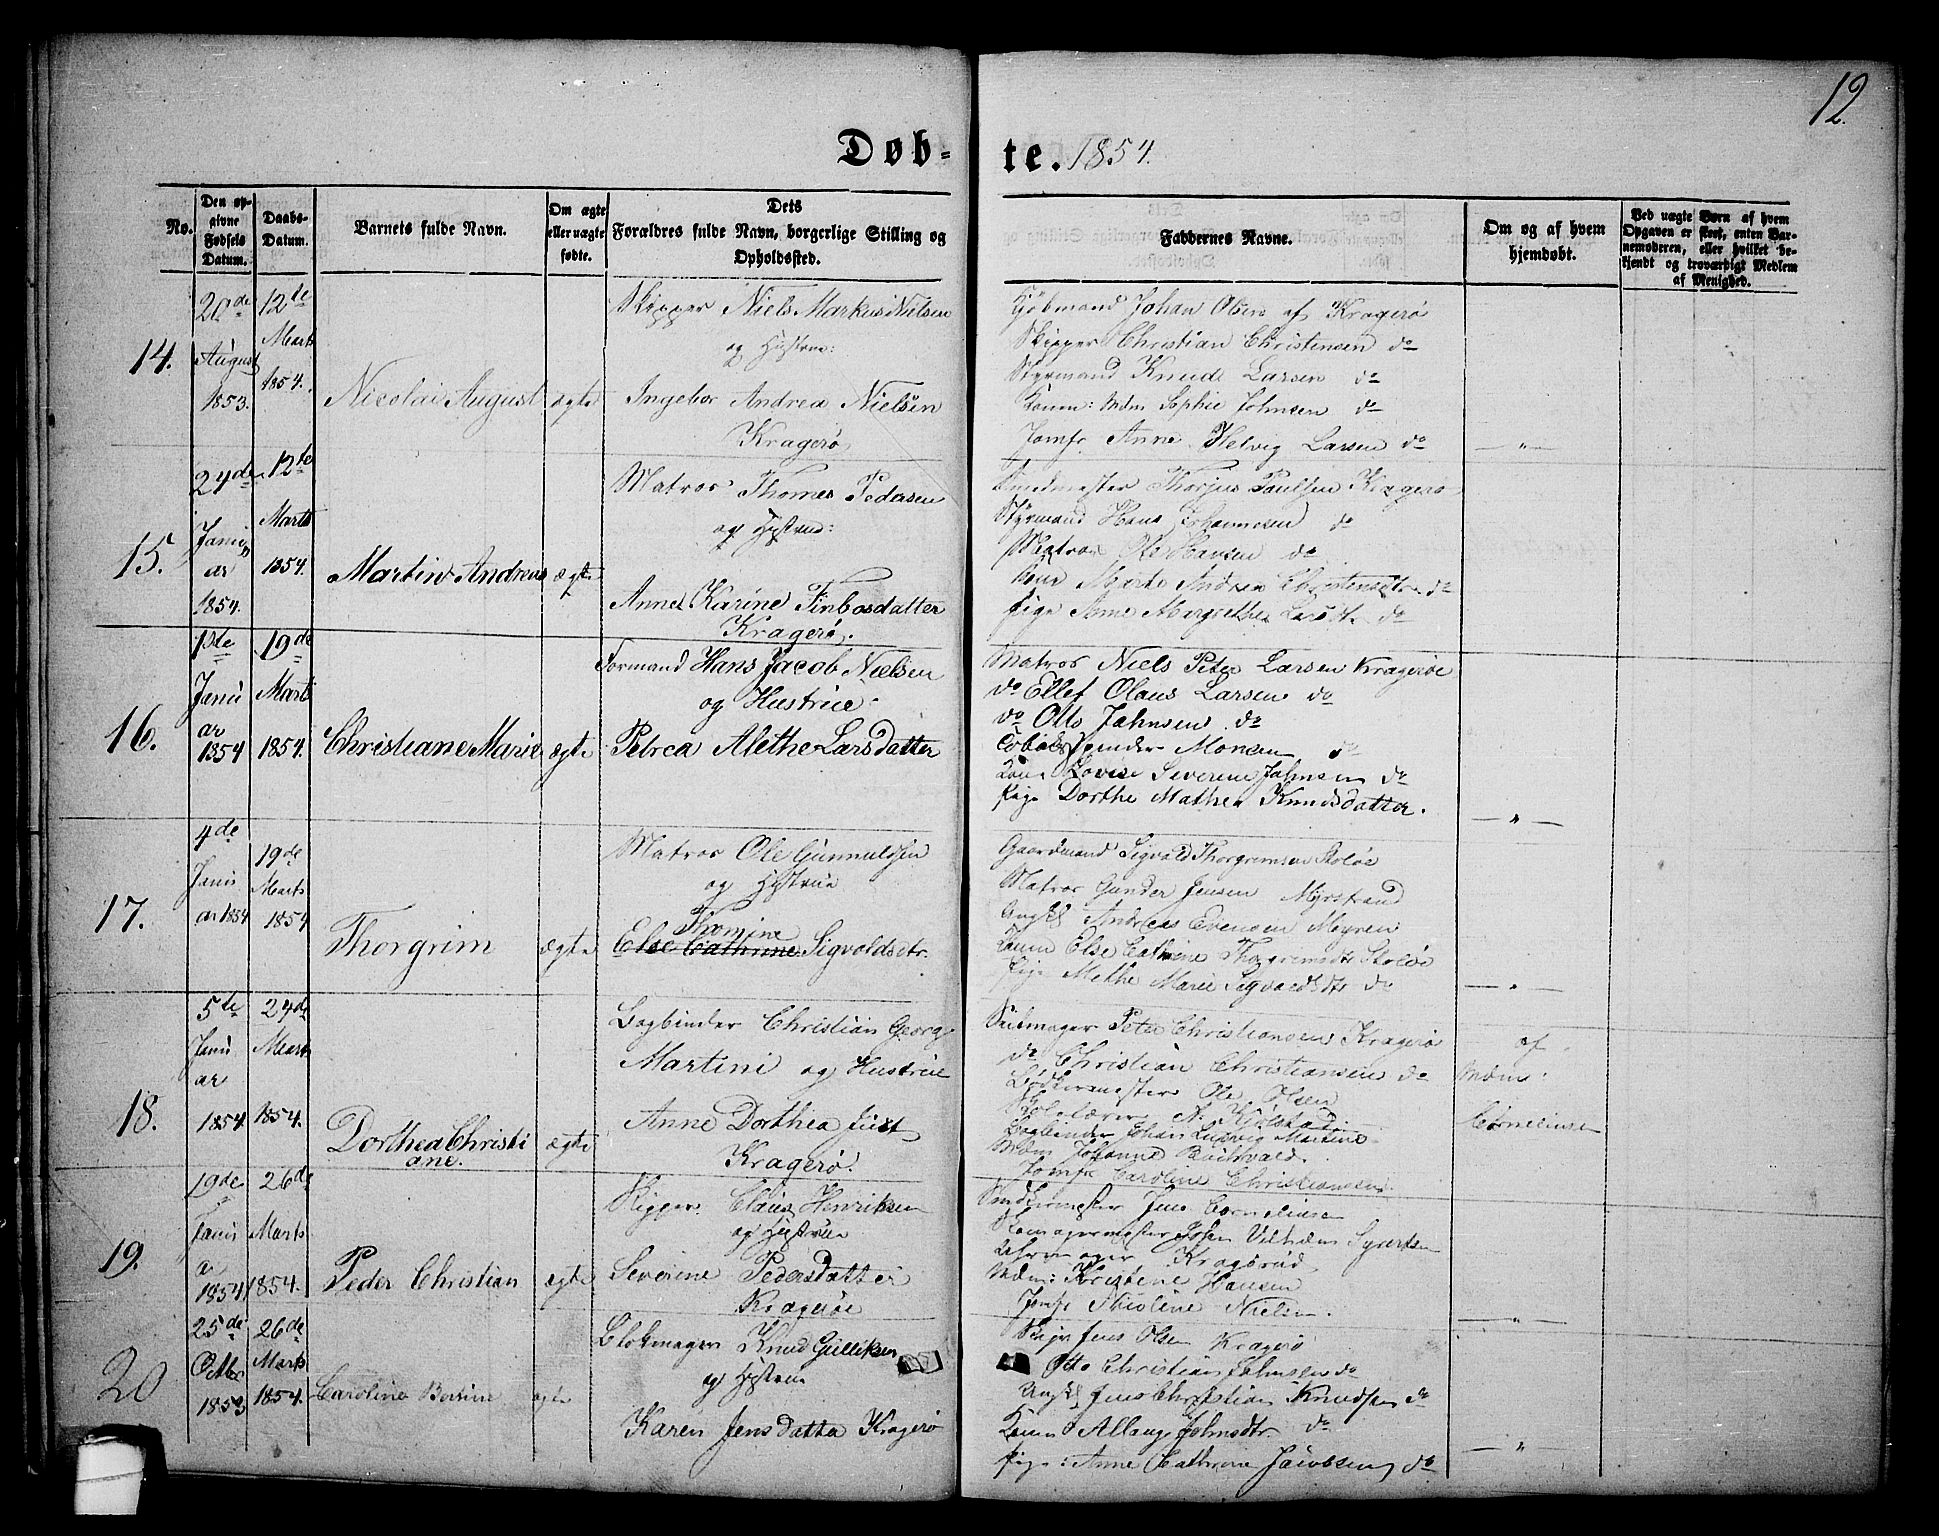 12.
Døb- te. 1854.
No.
Den op-
givne
Fødsels
Datum.
Daabs-
Datum.
Barnets fulde Navn.
Om ægte
eller uægte
fødte.
Dets
Forældres fulde Navn, borgerlige Stilling og
Opholdssted.
Faddernes Navne.
Om og af hvem
hjemdøbt.
Ved uægte Børn af hvem
Opgaven er skeet, enten Bar-
nemoderen, eller hvilket be-
kjendt og troværdigt Medlem
af Menighed.
14.
20de
August
1853.
12te
Marts
1854.
Nicolai August
ægte
Skipper Niels Markus Nielsen
og Hustrue:
Ingebor Andrea Nielsen
Kragerø
Kjøbmand Johan Olsen af Kragerø
Skipper Christian Christensen do
Styrmand Knud Larsen do
Konen: Mdm Sophie Johnsen do
Jomfr. Anne Helvig Larsen do
— " —
15.
24de
Janu
ar
1854.
12te
Marts
1854.
Martin Andreas
ægte
Matros Thomes Pedersen
og Hustrue:
Anne Karine Finbosdatter
Kragerø.
Smedmester Thorjus Paulsen Kragerø
Styrmand Hans Johannesen do
Matros Ole Hansen do
Kone Marte Andrea Christensdtr. do
Pige Anne Margrethe do
16.
1ste
Janu
ar
1854
19de
Marts
1854.
Christiane Marie
ægte
Formand Hans Jacob Nielsen
og Hustrue
Petrea Alethe Larsdatter
Matros Niels Peter Larsen Kragerøe
do Ellef Olaus Larsen do
do Otto Jahnsen do
Monsen do
Kone Lovise Severine Jahnsen do
Pige Dorthe Mathea Knudsdatter.
— " —
17.
4de
Janu
ar 1854
19de
Marts
1854
Thorgrim
ægte
Matros Ole Gunnuldsen
og Hustrue
Thomine
Else Cathrine Sigvoldsdtr.
Gaardmand Sigvald Thorgrimsen Stoløe
Matros Gunder Jensen Myrstrand
Ungkl Andreas Evensen Myren
Konen Else Cathrine Thorgremsdtr Stoløe
Pige Methe Marie Sigvaldsdtr do
— " —
18.
5te
Janu
ar
1854
24de
Marts
1854.
Dorthea Christi
ane.
ægte
Bogbinder Christian Georg
Martini og Hustrue
Anne Dorthea Just
Kragerø.
Seilmager Peter Christiansen Kragerø
do Christian Christiansen do
Bødkermester Ole Olsen
Skolelærer A. Kjølstad
Bogbinder Johan Ludvig Martini
Mdm Johanne Buchvald.
Jomfr Caroline Christiansen
af
Mdm
Cornelius
19.
19de
Janu
a
1854
26de
Marts
1854.
Peder Christian
ægte
Skipper Claus Henriksen
og Hustrue
Severine Pedersdatter
Kragerøe
Jens Cornelius
Vilhelm
Mdm: Kirstene Hansen
Jomfr Nicoline Nielsen.
— " —
20
25de
Octbr
1853
26de
Marts
1854.
Caroline
ægte
Blokmager Knud Gulliksen
og Hustrue
Karen Jensdatter Kragerø
Skipr Jens Olsen Kragerø
Otto Christian Jahnsen do
Ungkl Jens Christian Knudsen do
Konen Johnsdtr. do
Pige: Anne Cathrine Jacobsen do
— " —